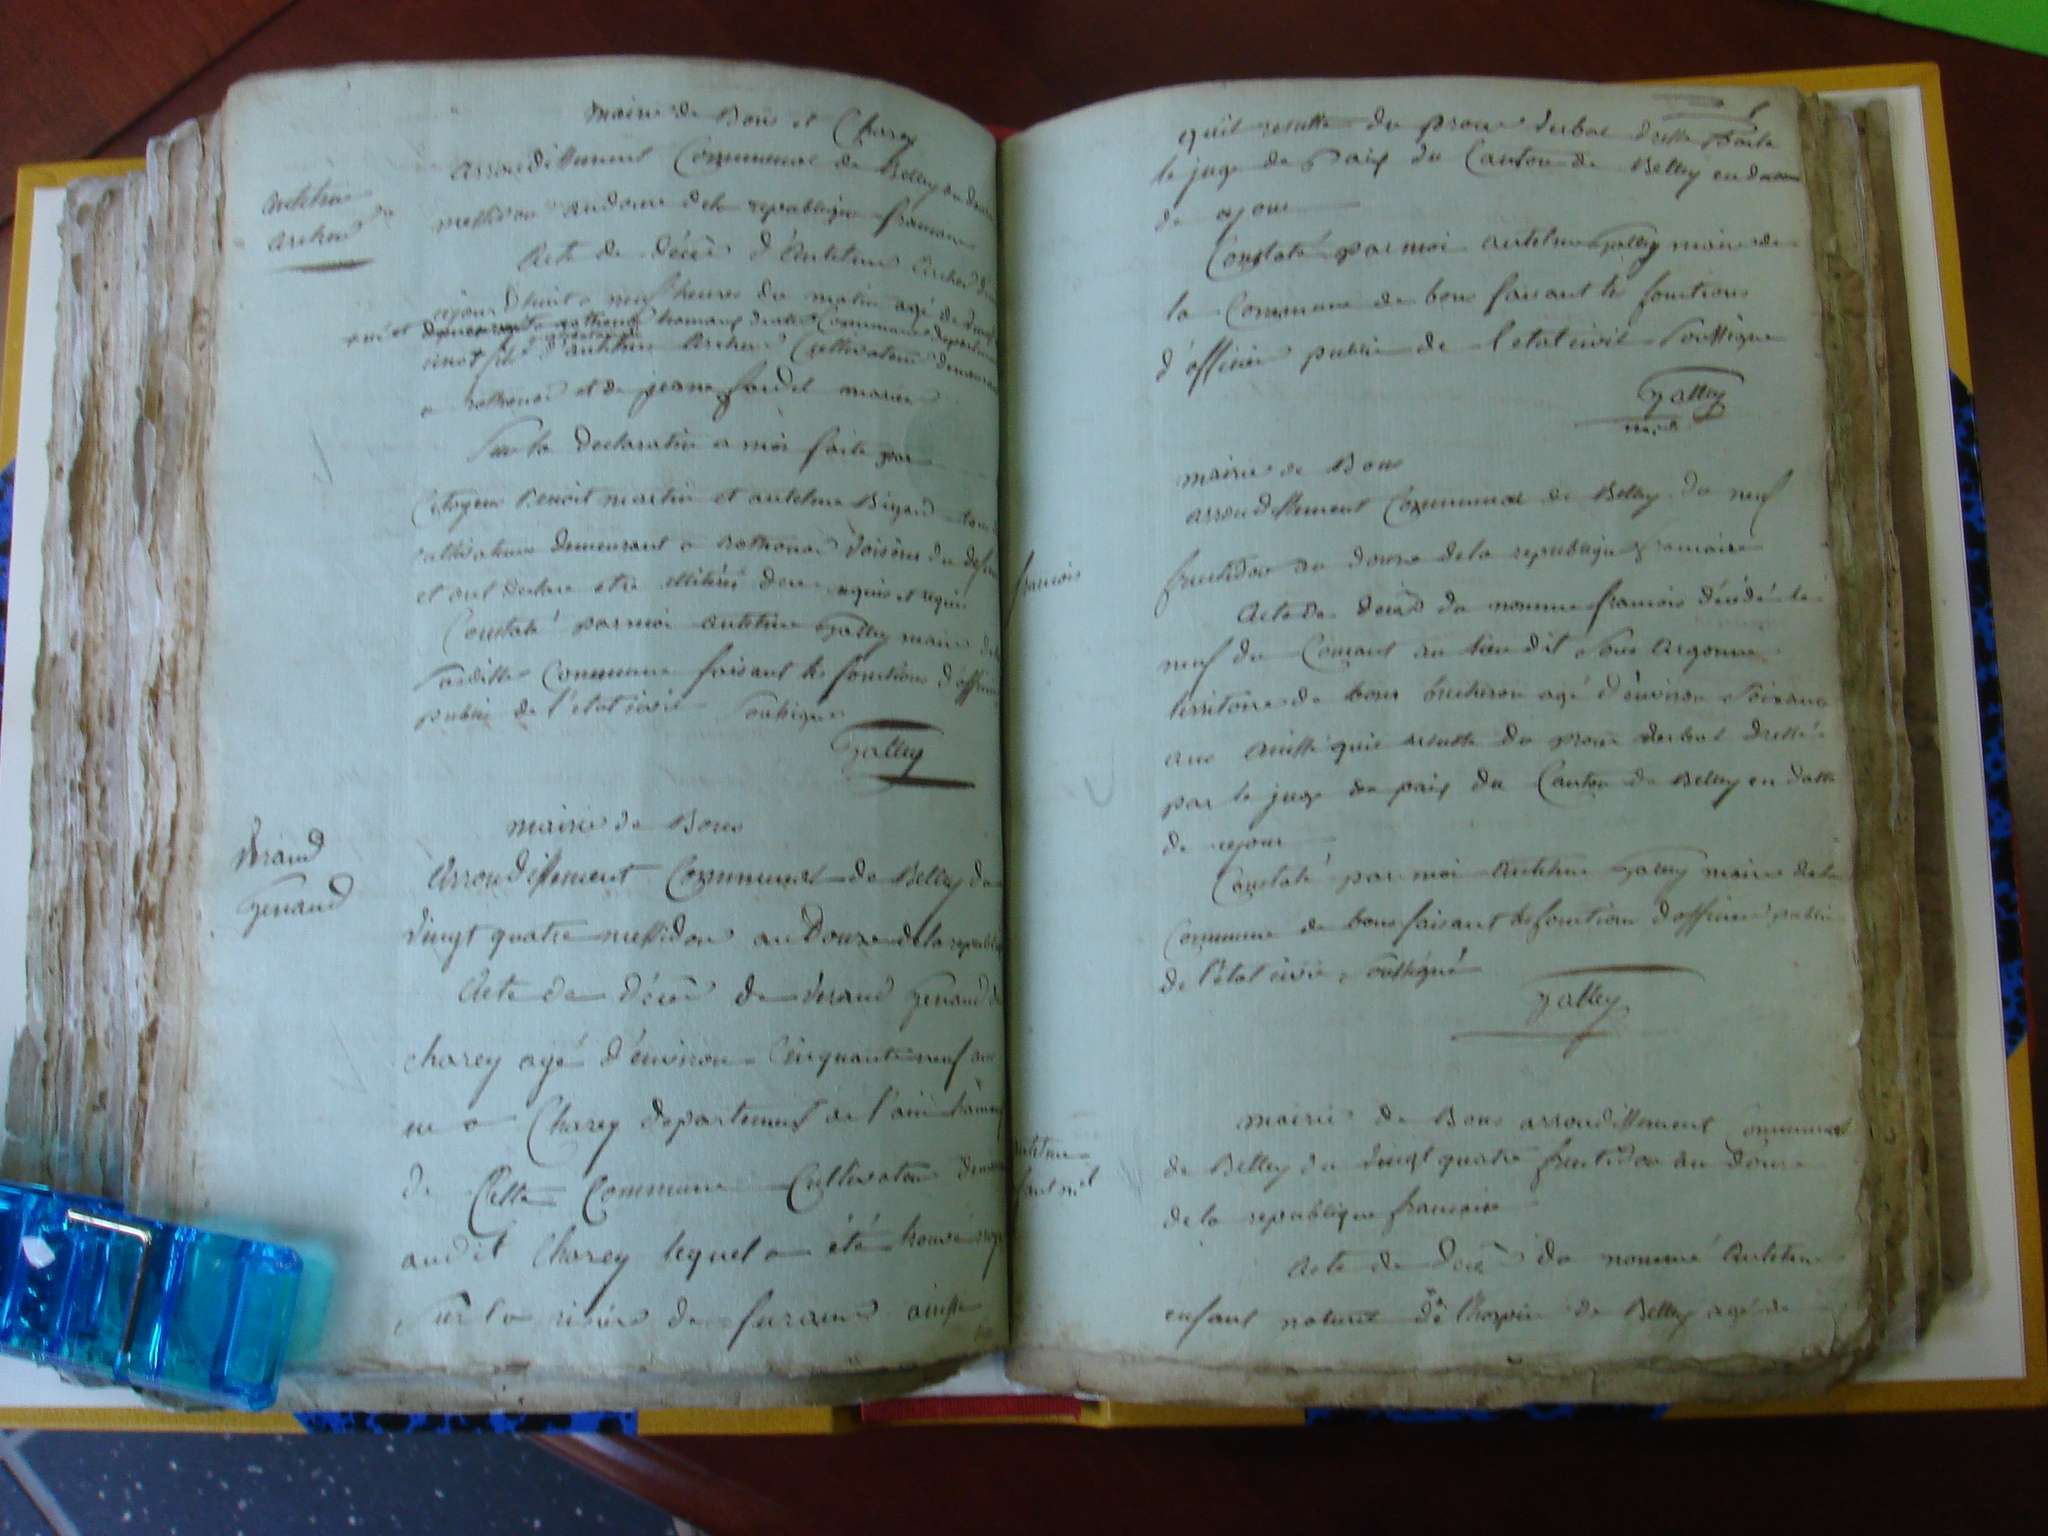 mairie de Bons et Charey
arrondissement Communal de Belley du
messidor an douze dela republique francaise
antelme
archer
Acte de décès d'antelme archer
a neuf heures du matin agé de
a et fils d'antelme archer Cultivateur demeurant
a rothonod et de jeanne mariés
Sur la declaration a moi faite par
Citoyens benoit martin et antelme Bigard
cultivateurs demeurant a rothonod voisins du defunt
et ont declare etre illitérés de ce enquis et requis
Constaté par moi antelme Galley maire de
laditte Commune faisant les fonctions d'officier
public de l'etat civil Soussigné
Galley
mairie de Bons
véraud
genaud
Arrondissement Communal de Belley du
vingt quatre messidor an Douze dela republique
Acte de décès de véraud genaud de
charey agé d'environ Cinquante neuf ans
né a Charey departement de l'ain hameau
de Cette Commune Cultivateur demeurant
audit Charey lequel a été trouvé
Sur la riviere de furand ainsi
quil resulte du proces verbal
le juge de paix du Canton de Belley en datte
de ce jour
Constaté par moi antelme Galley maire de
la Commune de bons faisant les fonctions
d'officier public de l'etat civil Soussigné
Galley
mairie de Bons
arrondissement Communal de Belley du neuf
francois
fructidor an douze dela republique francaise
Acte de décès du nomme francois décédé le
neuf du Courant au lieu dit Sous Argonne
territoire de bons bucheron agé d'environ Soixante
ans ainsi qu'il resulte du proces verbal dressé
par le juge de paix du Canton de Belley en datte
de ce jour
Constaté par moi Antelme Galley maire dela
Commune de bons faisant les fonctions d'officier public
de l'état civil Soussigné
Galley
mairie de Bons arrondissement Communal
antelme
de Belley du vingt quatre fructidor an douze
de la republique francaise
Acte de décès du nommé Antelme
enfant naturel de l'hospice de Belley agé de